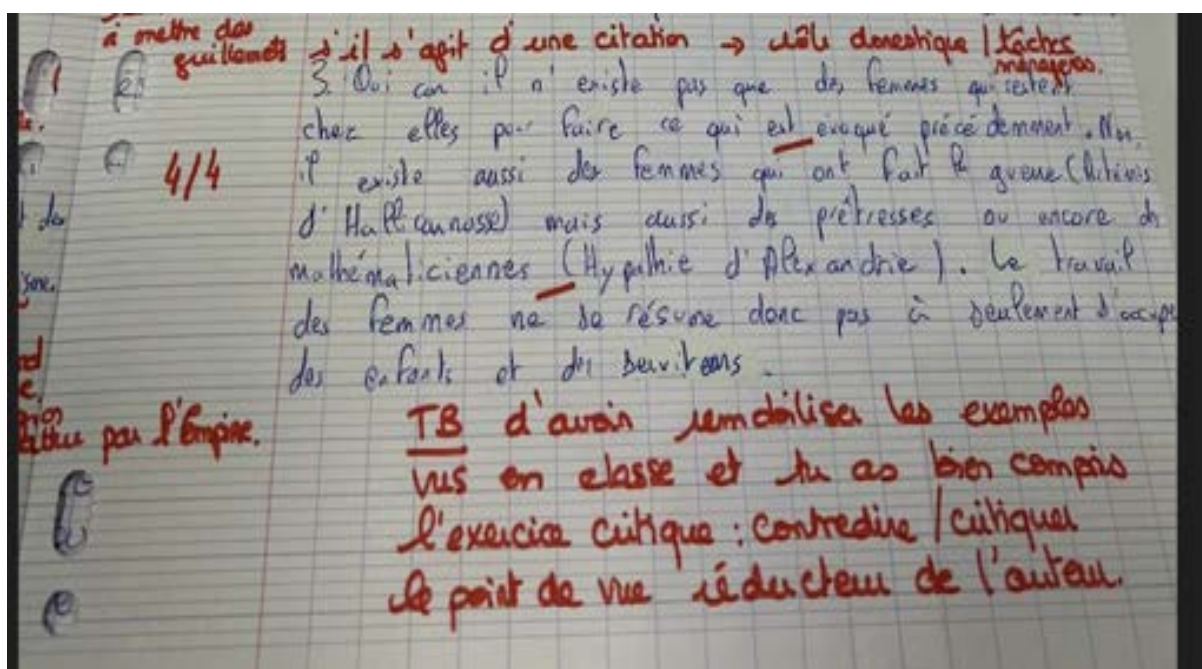 à mettre des
guillemets s'il s'agit d'une citation → rôle domestique / tâches
ménagères.
3. Oui car il n'existe pas que des femmes qui restent
chez elles pour faire ce qui est évoqué précédemment. Non,
il existe aussi des femmes qui ont fait la guerre (
4/4
d'Halicarnasse) mais aussi des prêtresses ou encore des
mathématiciennes (Hypathie d'Alexandrie). Le travail
des femmes ne se résume donc pas à seulement s'occuper
des enfants et des serviteurs.
par l'Empire.
TB d'avoir remobiliser les exemples
vus en classe et tu as bien compris
l'exercice critique : contredire / critiquer
le point de vue réducteur de l'auteur.